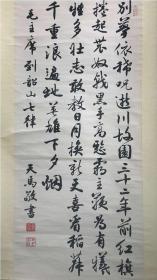 别夢依稀咒逝川故園三十二年前紅旗
捲起農奴戟黑手高懸霸主鞭為有犧
牲多壮志敢教日月換新天喜看稻菽
千重浪遍地英雄下夕烟
毛主席到韶山七律
天馬敬書